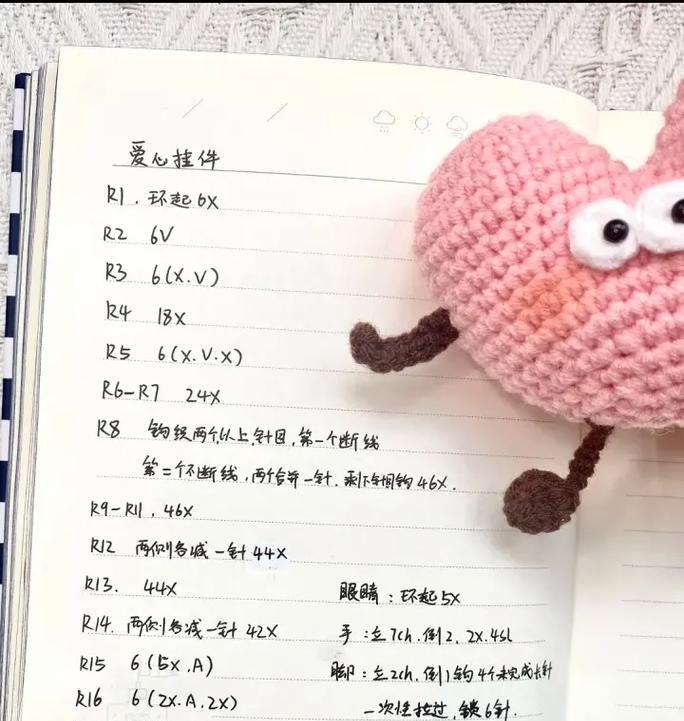 爱心挂件
R1. 环起6X
R2 6V
R3 6(X.V)
R4 18X
R5 6(X.V.X)
R6-R7 24X
R8 钩织两个以上针目,第一个断线
第二个不断线,两个合并一针.剩下每针钩46X.
R9-R11. 46X
R12 两侧各减一针44X
R13. 44X
R14. 两侧各减一针42X
R15 6(5X.A)
R16 6(2X.A.2X)
眼睛:环起5X
手:立7ch.倒2.2X.4sl
脚:立2ch.倒1钩4个未完成长针
一次性拉过.锁6针.